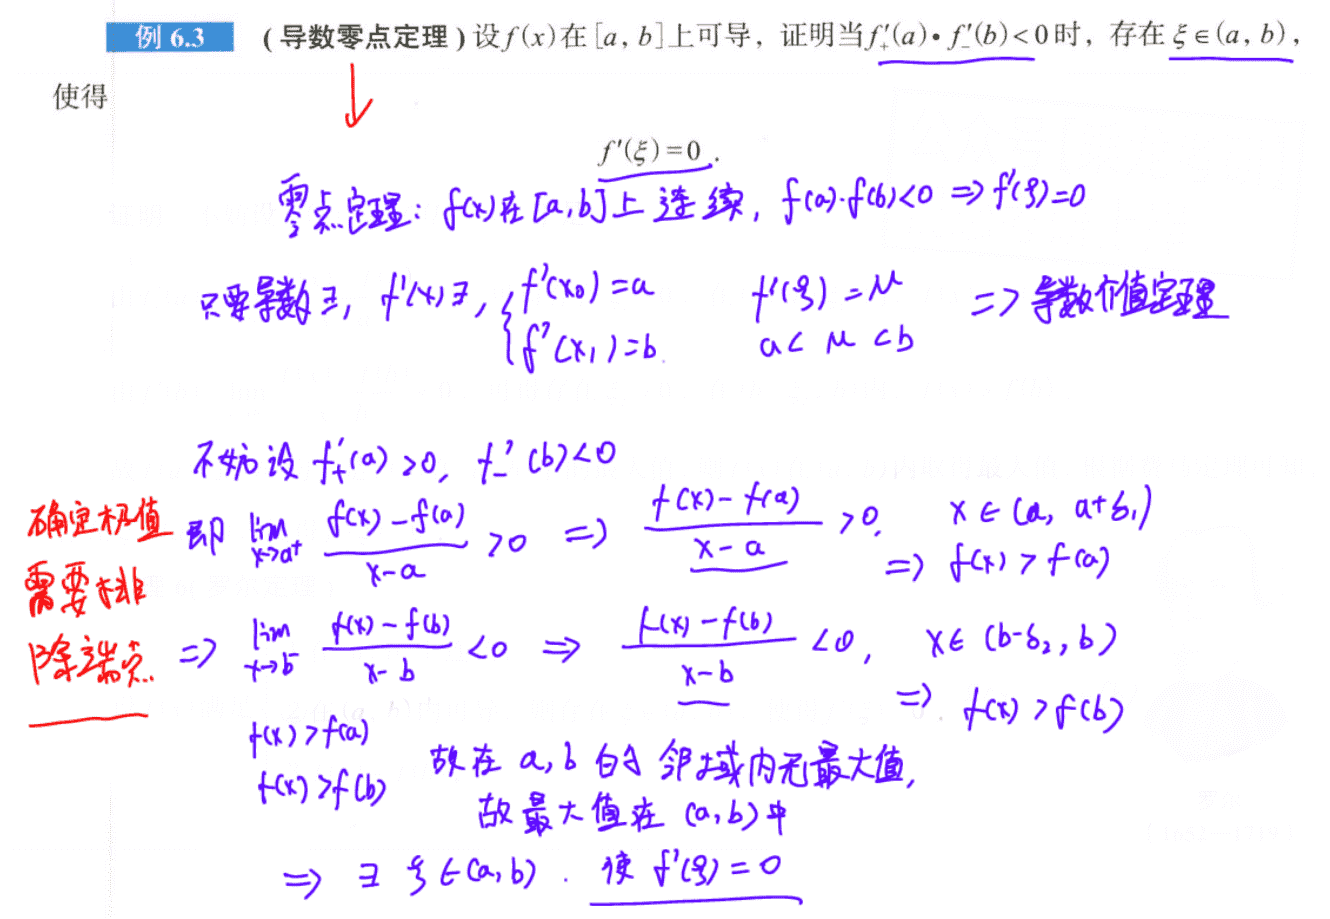 例 6.3 (导数零点定理)设f(x)在[a, b]上可导，证明当f′₊(a)·f′₋(b)<0时，存在ξ∈(a, b)，
使得
f′(ξ)=0.
零点定理：f(x)在[a,b]上连续，f(a)·f(b)<0 ⇒ f′(ξ)=0
只要导数∃，f′(x)∃，{f′(x₀)=a f′(ξ)=μ ⇒ 导数介值定理
f′(x₁)=b. a<μ<b
不妨设 f′₊(a)>0, f′₋(b)<0
确定极值
需要排
除端点
即 lim x→a⁺ (f(x)-f(a))/(x-a) >0 ⇒ (f(x)-f(a))/(x-a) >0, x∈(a, a+δ₁)
⇒ f(x)>f(a)
⇒ lim x→b⁻ (f(x)-f(b))/(x-b) <0 ⇒ (f(x)-f(b))/(x-b) <0, x∈(b-δ₂, b)
⇒ f(x)>f(b)
f(x)>f(a)
f(x)>f(b)
故在 a,b 的邻域内无最大值,
故最大值在 (a,b) 中
⇒ ∃ ξ∈(a,b). 使 f′(ξ)=0